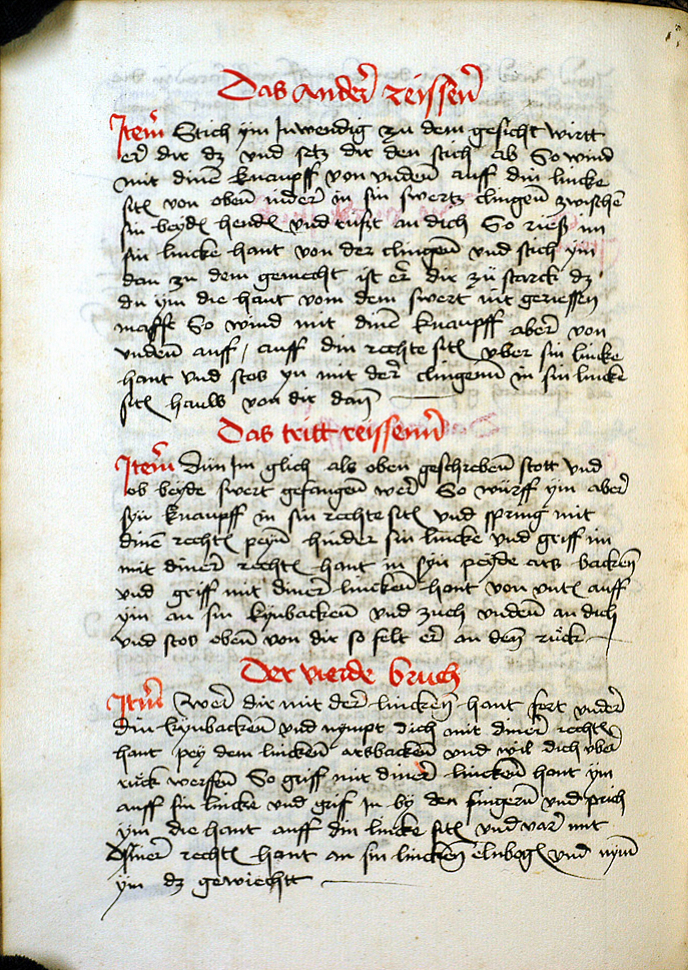 Das ander reissen
Item Stich ym Inwendig zu dem gesicht wirtt
er dir dz vnd setz dir den stich ab So wind
mit dinē knaupff von vnden auff din lincke
sitē von oben nider in sin swertz clingen zwischē
sin beydē hendē vnd ruszt an dich So riesz im
sin lincke hant von der clingen vnd stich ym
dan zu dem gemecht ist er dir zü starck dz
du ym die hant vom dem swert nit geriessen
mafft So wind mit dinē knaupff aber von
vnden auff / auff din rechte sitē vber sin lincke
hant vnd stos yn mit der clingenn in sin lincke
sitē hauls von dir dan
Das tritt reissenn
Item dün Im glich als oben geschreben stott vnd
ob beyde swert gefangen wer So würff ym aber
syn knaupff in sin rechte sitē vnd spring mit
dinē rechtē peyn hinder sin lincke vnd griff im
mit diner rechtē hant in syn peyde ars backen
vnd griff mit diner lincken hant von vntē auff
ym an sin kynbacken vnd zuch vnden an dich
vnd stos oben von dir so felt er an den rück
Der vierde bruch
Item Wer dir mit der lincken hant fert vnder
din kynbacken vnd nympt dich mit diner rechtē
hant pey dem lincken arsbacken vnd wil dich vber
rück werffen So griff mit diner lincken hant ym
auff sin lincke vnd grif In by den fingern vnd prich
ym die hant auff din lincke sitē vnd var mit
diner rechtē hant an sin lincken elnbogē vnd nym
ym dz gewiechtt